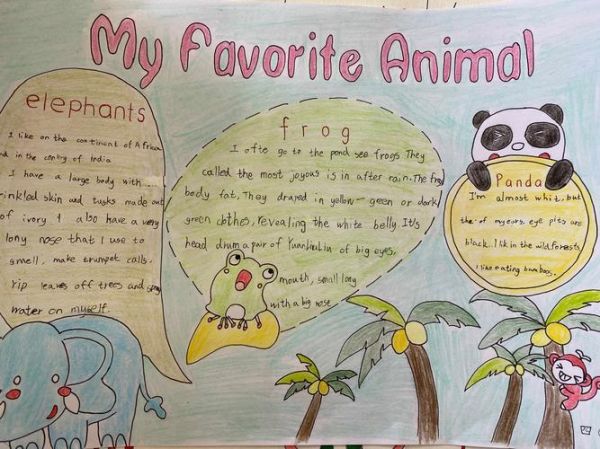 My Favorite Animal
elephants
I like on the continent of Africa
nd in the contry of India
I have a large body with
inkled skin and tusks made out
of ivory I also have a very
lony nose that I use to
smell, make trumpet calls.
rip leaves off trees and spray
water on muself.
frog
I ofte go to the pond see frogs They
called the most joyous is in after rain. The frog
body fat. They draped in yellow-green or dark
green clothes, revealing the white belly It's
head drum a pair of of big eyes,
mouth, small long
with a big nose
Panda
I'm almost whit, but
the of my ears, eye pits are
black. I lik in the wild forests
I like eating bamboo.